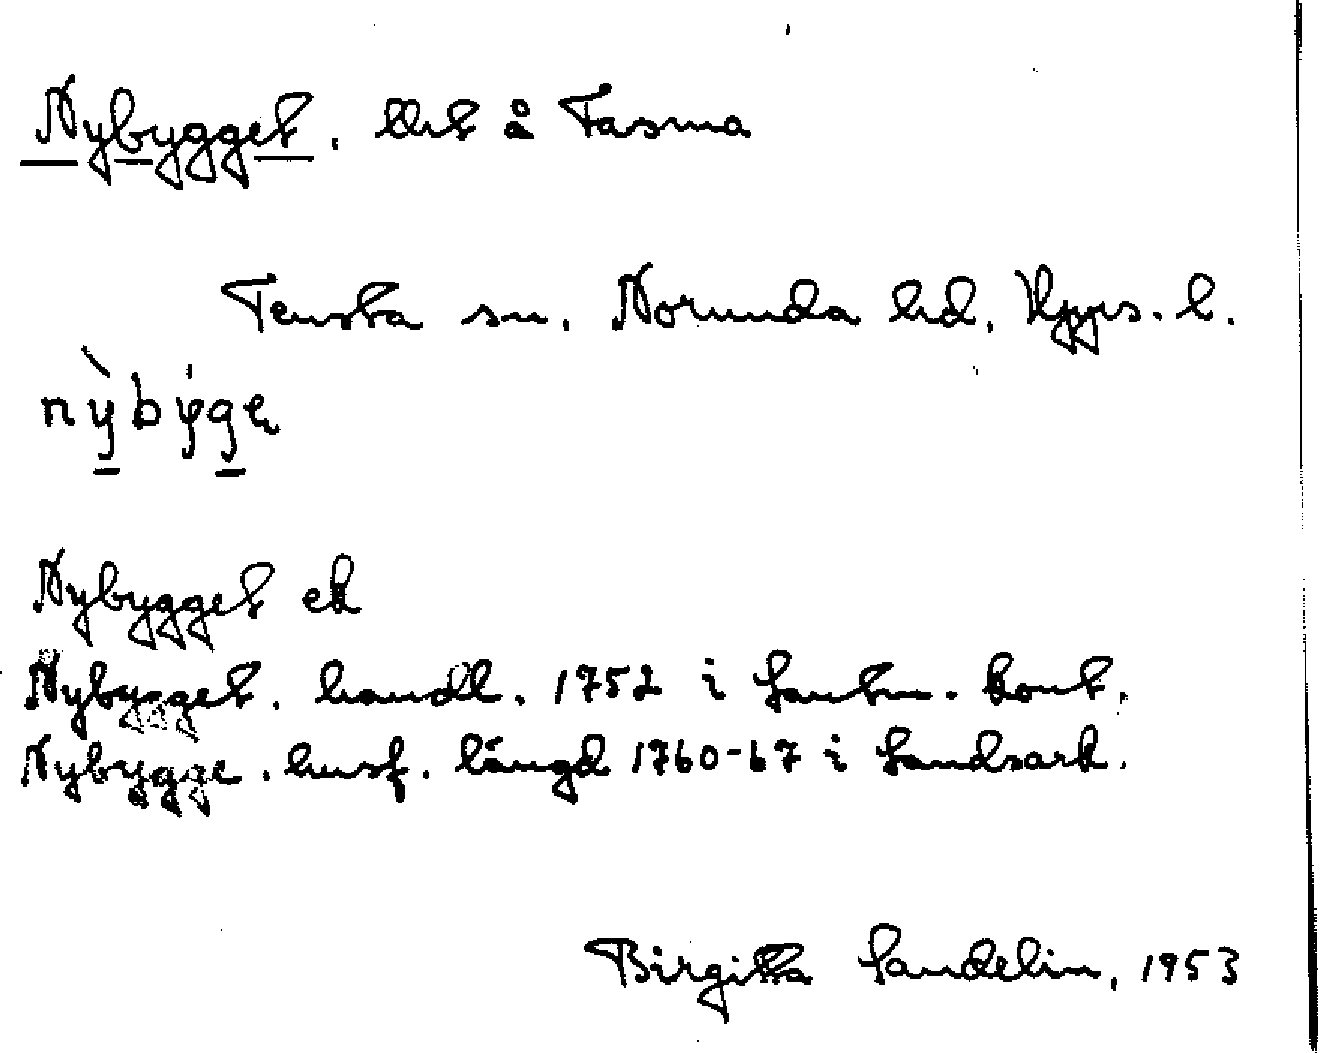 Nybygget, lht å Fasma
Tensta sn. Norunda hd. Upps. l.
nỳbýge
Nybygget ek
Nybygget. handl. 1752 i Lantm. kont.
Nybygge. husf. längd 1760-67 i Landsark.
Birgitta Sandelin, 1953